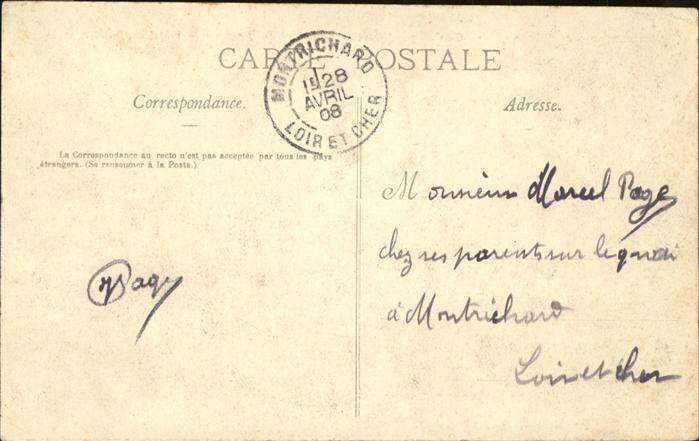 CARTE POSTALE
MONTRICHARD
28
AVRIL
08
LOIR ET CHER
Correspondance.
Adresse.
La Correspondance au recto n'est pas acceptée par tous les pays
étrangers. (Se renseigner à la Poste.)
Monsieur Marcel Page
chez ses parents sur le quai
à Montrichard
Loir et cher